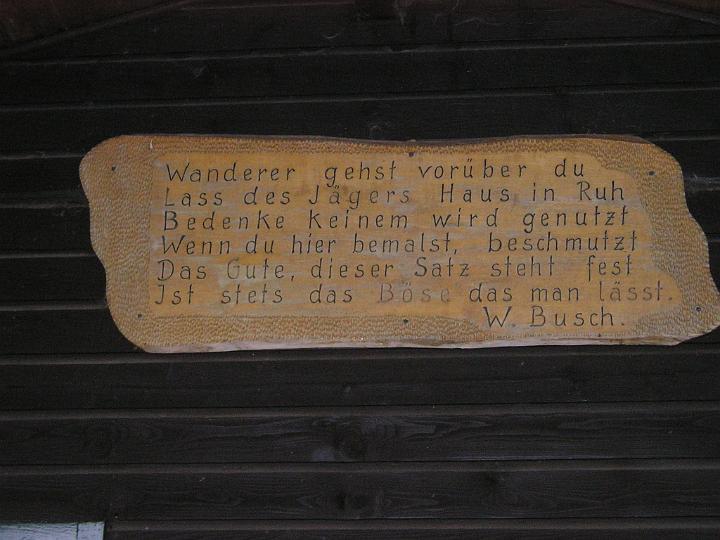 Wanderer gehst vorüber du
Lass des Jägers Haus in Ruh
Bedenke keinem wird genutzt
Wenn du hier bemalst, beschmutzt
Das Gute, dieser Satz steht fest
Ist stets das Böse das man lässt.
W. Busch.